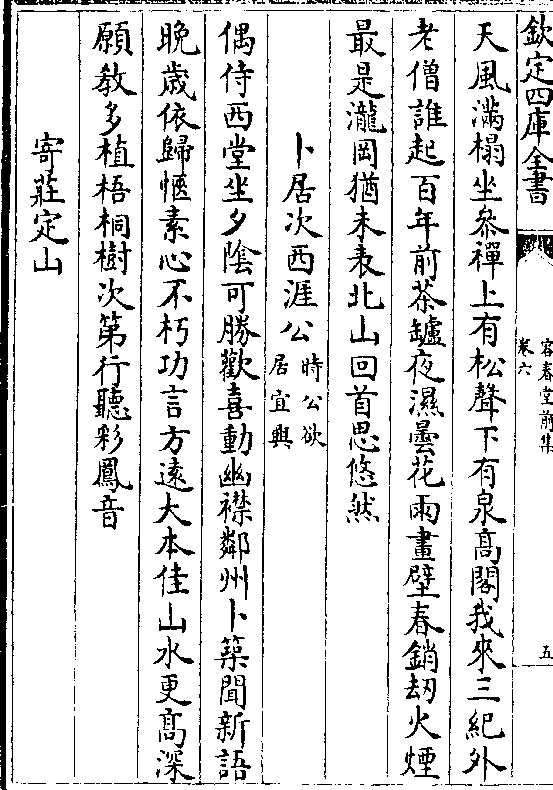 欽定四庫全書
容春堂前集
卷六
五
天風滿榻坐叅禪上有松聲下有泉髙閣我來三紀外
老僧誰起百年前茶罏夜濕曇花雨畫壁春銷刼火煙
最是瀧岡猶未表北山回首思悠然
卜居次西涯公時公欲居宜興
偶侍西堂坐夕陰可勝歡喜動幽襟鄰州卜築聞新語
晩歲依歸愜素心不朽功言方逺大本佳山水更髙深
願教多植梧桐樹次第行聽彩鳳音
寄莊定山